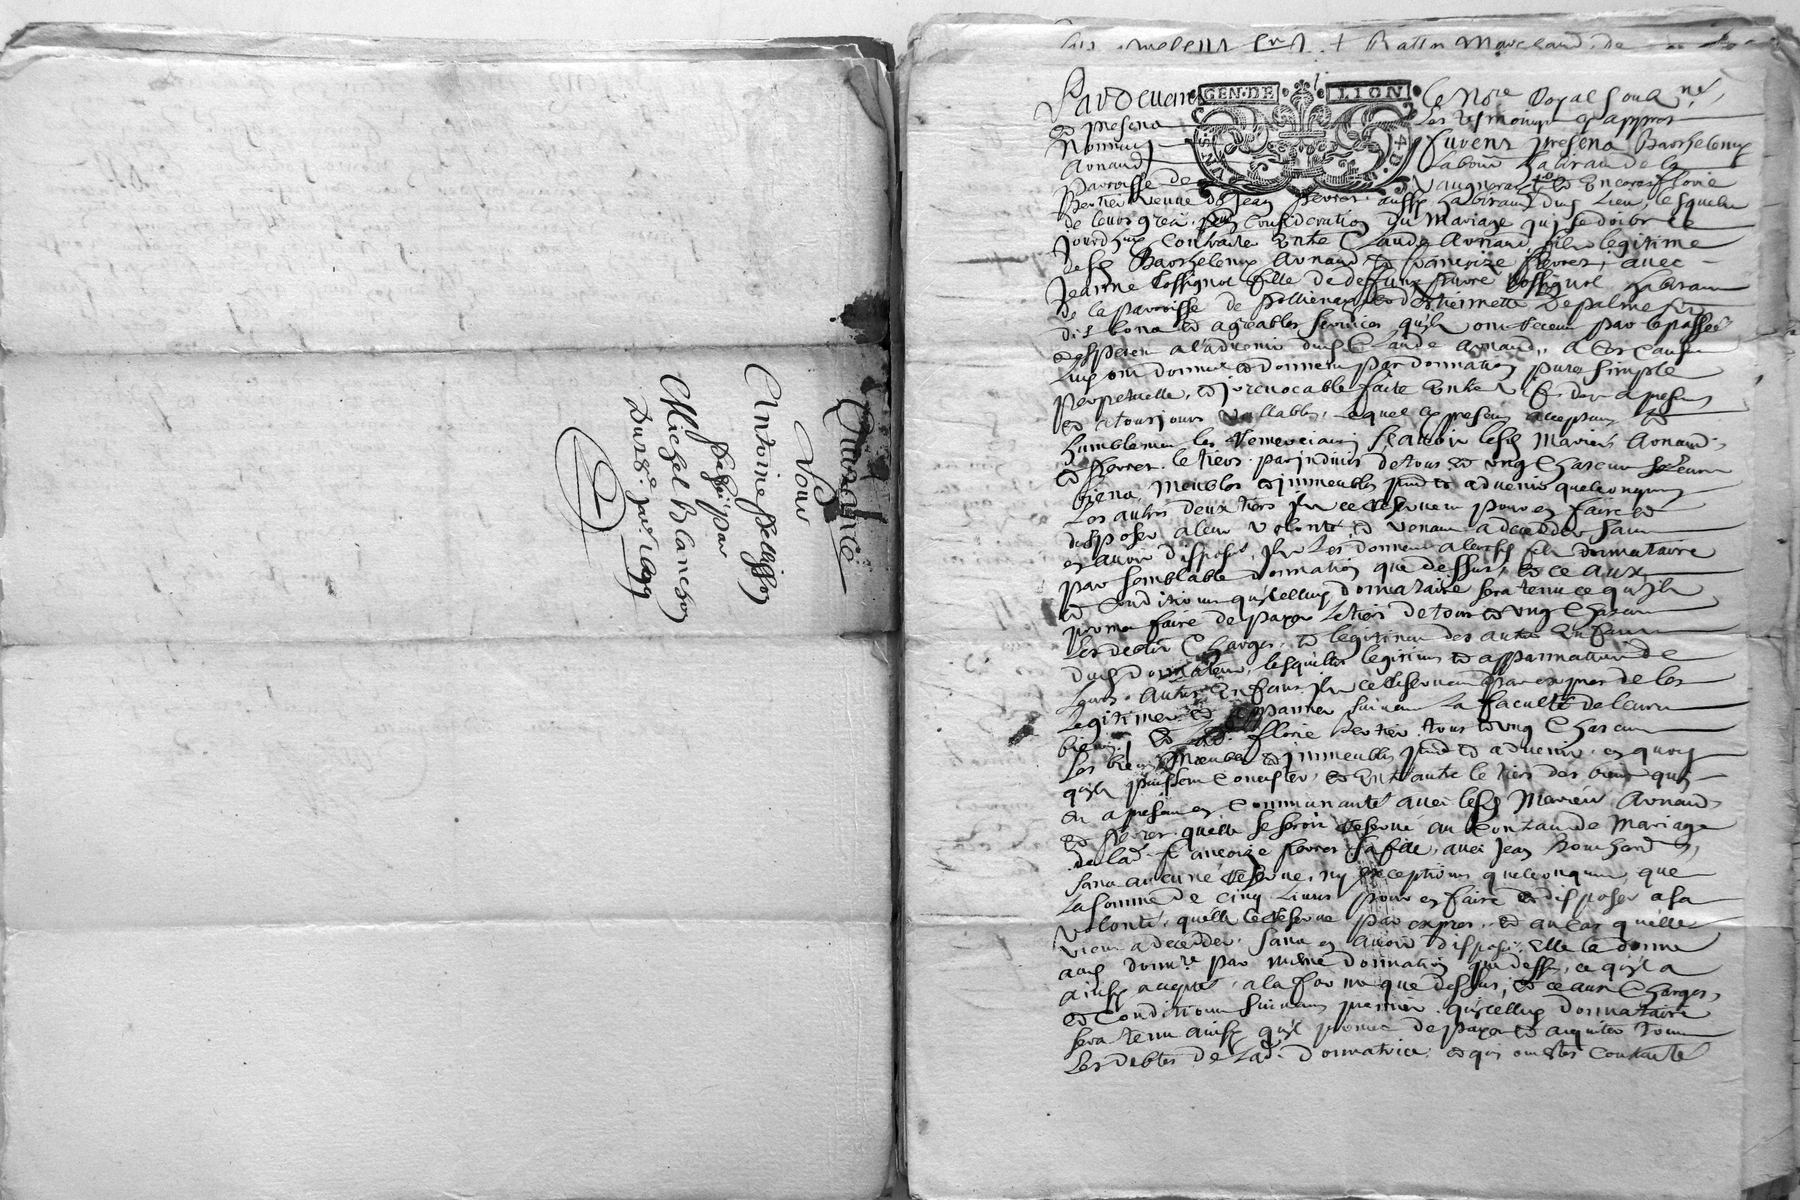 Quictance
Pour
Antoine pellisson
De lui par
Michel blanchon
Du 18e jer 1699
Marchand de
Pardevant
GEN·DE LION
le Nore Royal soubz né,
et presens
les tesmoings cy appres
Nommez
furent presens Barthelemy
Arnaud
labour habitant de la
parroisse de
Vaugneray et encores florie
Bertier veuve de Jean ferrer aussy habitante dud lieu, lesquels
de leurs grez en consideration du mariage qui se doibt ce
jourdhuy contracter entre Claude Arnaud fils legitime
desd Barthelemy Arnaud et francoize ferrer, avec
Jeanne Rossignol fille de deffunt Rossignol habitant
de la parroisse de pollienay et d'estiennette Depalme
des bons et agreables services qu'ils ont receu par le passé
et esperent a l'advenir dud Claude Arnaud, a ces causes
luy ont donné et donnent par donnation pure simple
perpetuelle, et irrevocable faite entre vifs des a presens
et a tousjours vallable, lequel cy present acceptant et
humblement les remerciant scavoir lesd Mariés Arnaud
et ferrer le tiers par indivis de tous et ung chascun leurs
biens, meubles et immeubles pnts et advenir quelconques
les autres deux tiers ils ce reservent pour en faire et
disposer a leur volonté, et venant a deceder sans
en avoir disposé, ils les donnent a leurd fils donnataire
par semblable donnation que dessus, et ce aux
et conditions qu'icelluy donnataire sera tenu ce qu'il
promet faire de payer le tiers de tous et ung chascun
les debtes charges, et legitimes des autres enfans
dud donnateur, lesquelles legitimes et appannature de
leurs autres enfans ils ce reservent par expres de les
legitimer et appanner suivant la faculté de leurs
biens, et lad. florie Bertier tous et ung chascun
les biens meubles et immeubles pnts et advenir en quoy
qu'ils puissent concister, et entre autre le tiers des biens qui
en a present en communauté avec lesd Mariés Arnaud
et ferrer quelle se seroit reservé au contract de Mariage
de lad. francoize ferrer sa fille, avec Jean
sans aucune reserve, ny exceptions quelconques que
la somme de cinq livres pour en faire et disposer a sa
volonté, qu'elle ce reserve par expres, et au cas qu'elle
vient a deceder sans en avoir disposé, Elle la donne
aud donnre par même donnation que dessus, ce qu'il a
ainsy accepté, a la forme que dessus, et ce aux charges,
et conditions suivans premier qu'icelluy donnataire
sera tenu ainsy qu'il promet de payer et acquiter tous
les debtes de lad. donnatrice, et qui ont estés contracté